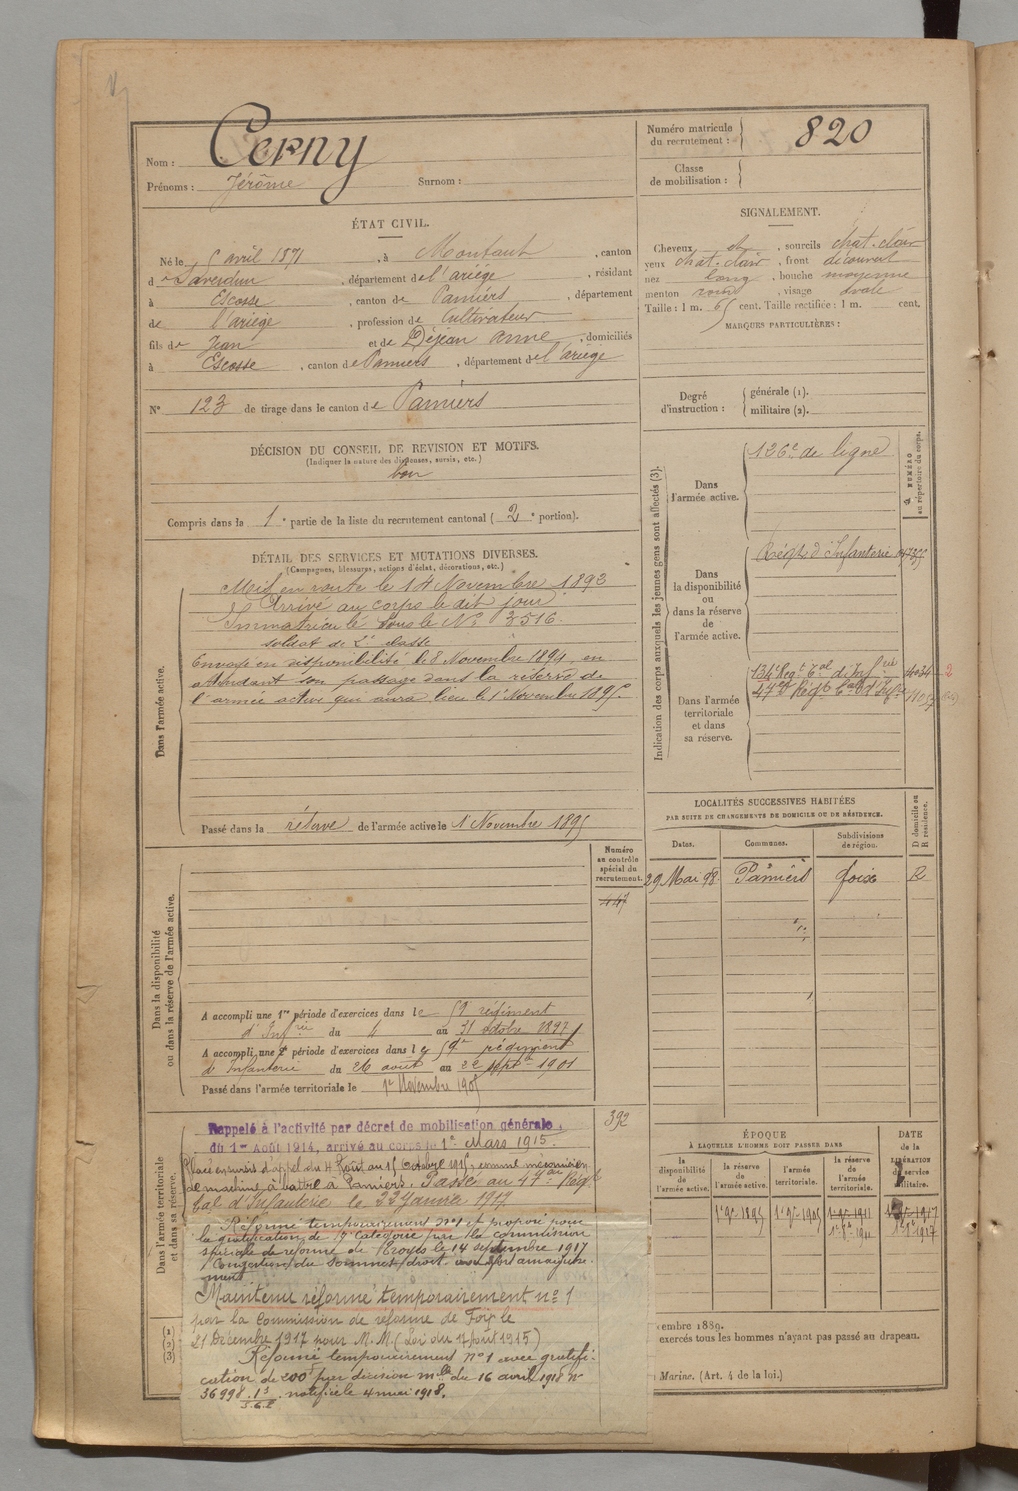 Nom : Cerny
Prénoms : Jérôme Surnom :
Numéro matricule du recrutement : 820
Classe de mobilisation :
ÉTAT CIVIL.
Né le 5 avril 1871, à Montaut, canton
de Saverdun, département de l'ariège, résidant
à Escosse, canton de Pamiers, département
de l'ariège, profession de Cultivateur
fils de Jean et de Déjean anne, domiciliés
à Escosse, canton de Pamiers, département de l'ariège
N° 123 de tirage dans le canton de Pamiers
SIGNALEMENT.
Cheveux et, sourcils chat. clair
yeux chat. clair, front découvert
nez long, bouche moyenne
menton rond, visage ovale
Taille : 1 m. 65 cent. Taille rectifiée : 1 m. cent.
MARQUES PARTICULIÈRES :
Degré d'instruction : générale (1). militaire (2).
DÉCISION DU CONSEIL DE REVISION ET MOTIFS.
(Indiquer la nature des dispenses, sursis, etc.)
bon
Compris dans la 1e partie de la liste du recrutement cantonal (2e portion).
DÉTAIL DES SERVICES ET MUTATIONS DIVERSES.
(Campagnes, blessures, actions d'éclat, décorations, etc.)
Dans l'armée active.
Mis en route le 14 Novembre 1893
Arrivé au corps le dit jour
Immatriculé sous le N° 3516.
soldat de 2e classe
Envoyé en disponibilité le 8 Novembre 1894, en
attendant son passage dans la réserve de
l'armée active qui aura lieu le 1 Novembre 1895
Passé dans la réserve de l'armée active le 1 Novembre 1895
Indication des corps auxquels les jeunes gens sont affectés (3).
NUMÉRO au répertoire du corps.
Dans l'armée active.
126e de ligne
Dans la disponibilité ou dans la réserve de l'armée active.
Régt d'Infanterie
Dans l'armée territoriale et dans sa réserve.
134e Régt Tal d'Infrie 4034 2
47e Régt Tal d'Infie
LOCALITÉS SUCCESSIVES HABITÉES
PAR SUITE DE CHANGEMENTS DE DOMICILE OU DE RÉSIDENCE.
Dates. Communes. Subdivisions de région. D domicile ou R résidence.
29 Mai 98. Pamiers foix R
Dans la disponibilité ou dans la réserve de l'armée active.
Numéro au contrôle spécial du recrutement.
447
A accompli une 1re période d'exercices dans le 59e régiment
d'Infrie du 4 au 31 octobre 1897
A accompli une 2e période d'exercices dans le 59e régiment
d'Infanterie du 26 août au 22 septe 1901
Passé dans l'armée territoriale le 1er Novembre 1905
Dans l'armée territoriale et dans sa réserve.
392
Rappelé à l'activité par décret de mobilisation générale
du 1er Août 1914, arrivé au corps le 1er Mars 1915.
Placé en sursis d'appel du 4 Août au 15 Octobre 1915, comme mécanicien
de machine à battre à Pamiers. Passé au 47e Régt
tal d'Infanterie le 22 Janvier 1917
Réformé temporairement n°1 et proposé pour
la gratification de 7e catégorie par la commission
spéciale de réforme de Troyes le 14 septembre 1917
Congestion du sommet droit
Maintenu réformé temporairement n° 1
par la Commission de réforme de Foix le
21 Décembre 1917 pour M.M. (Loi du 17 Août 1915)
Réformé temporairement n°1 avec gratifi-
cation de 200f par décision mlle du 16 avril 1918 n°
36998 notifié le 4 mai 1918.
ÉPOQUE
À LAQUELLE L'HOMME DOIT PASSER DANS
la disponibilité de l'armée active. la réserve de l'armée active. l'armée territoriale. la réserve de l'armée territoriale.
DATE de la LIBÉRATION du service militaire.
1er 9e 1895 1er 9e 1905 1er 9e 1911
(1)
(2)
(3)
cembre 1889.
exercés tous les hommes n'ayant pas passé au drapeau.
Marine. (Art. 4 de la loi.)